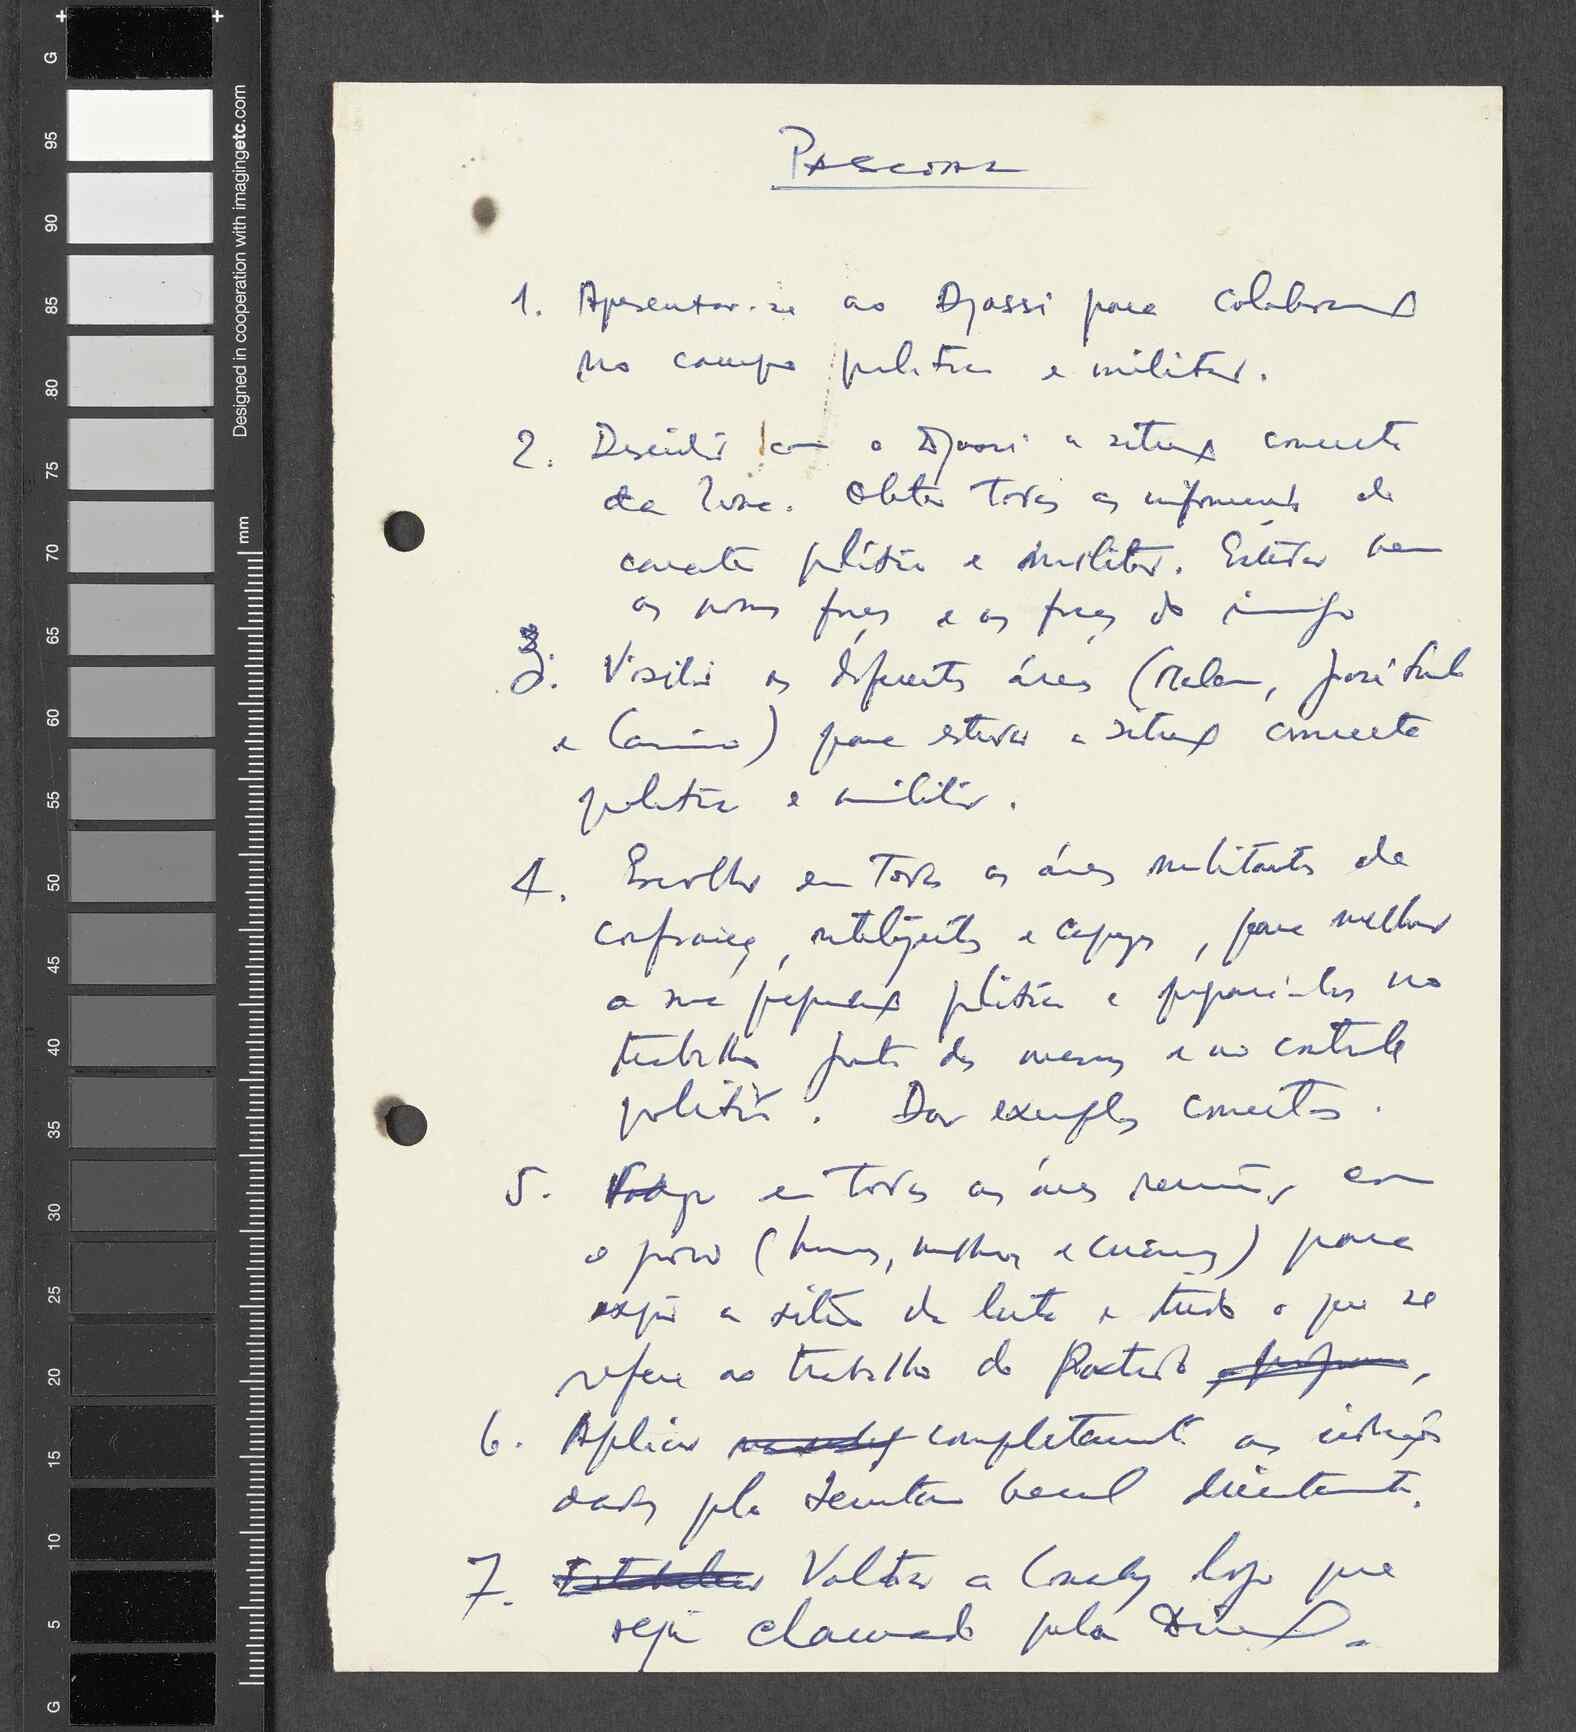 PASCOAL
1. Apresentar-se ao Djassi para colaboração
no campo politico e militar.
2. Discutir com o Djassi a situação concreta
da zona. Obter todas as informações de
caracter politico e militar. Estudar bem
as nossas forças e as forças do inimigo
3. Visitar as diferentes áreas (
e ) para estudar a situação concreta
politica e militar.
4. Escolher em todas as áreas militantes de
confiança, inteligentes e capazes, para melhorar
a sua preparação politica e prepará-los no
trabalho junto das massas e no controle
politico. Dar exemplos concretos.
5. em todas as áreas reunir com
o povo (homens, mulheres e crianças) para
expôr a situação da luta e tudo o que se
refere ao trabalho do Partido
6. Aplicar completamente as instruções
dadas pelo Secretário Geral directamente.
7. Estabelecer Voltar a Conakry logo que
seja chamado pela Direcção.
G
95
90
85
80
75
70
65
60
55
50
45
40
35
30
25
20
15
10
5
G
mm
Designed in cooperation with imagingetc.com